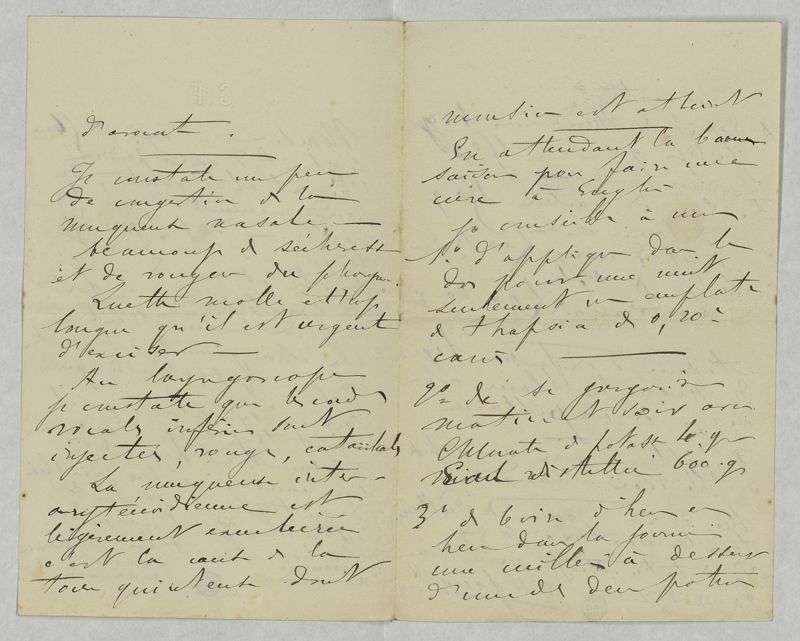 d'avocat.
Je constate un peu
de congestion de la
muqueuse nasale —
beaucoup de sécheresse
et de rougeur du pharynx.
Luette molle et trop
longue qu'il est urgent
d'exciser —
Au laryngoscope
je constate que les cordes
vocales inférieures sont
injectées, rouges, catarrhales
La muqueuse inter-
aryténoïdienne est
légèrement exulcérée
c'est la cause de la
toux quinteuse dont
monsieur est atteint
En attendant la bonne
saison pour faire une
cure à Enghien
je conseille à mr
1o d'appliquer dans le
dos pour une nuit
seulement un emplâtre
de thapsia de 0,20 c
carrés
2o de se gargariser
matin et soir avec
Chlorate de potasse 10 gr
Eau distillée 600 g
3o de boire d'heure en
heure dans la journée
une cuiller à dessert
d'une de deux potions